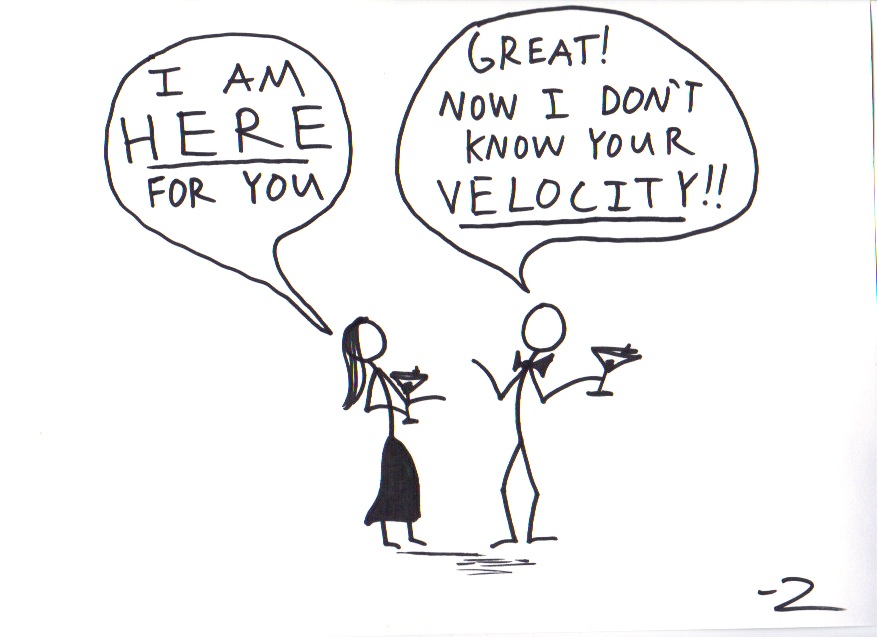 I AM
HERE
FOR YOU
GREAT!
NOW I DON'T
KNOW YOUR
VELOCITY!!
-Z